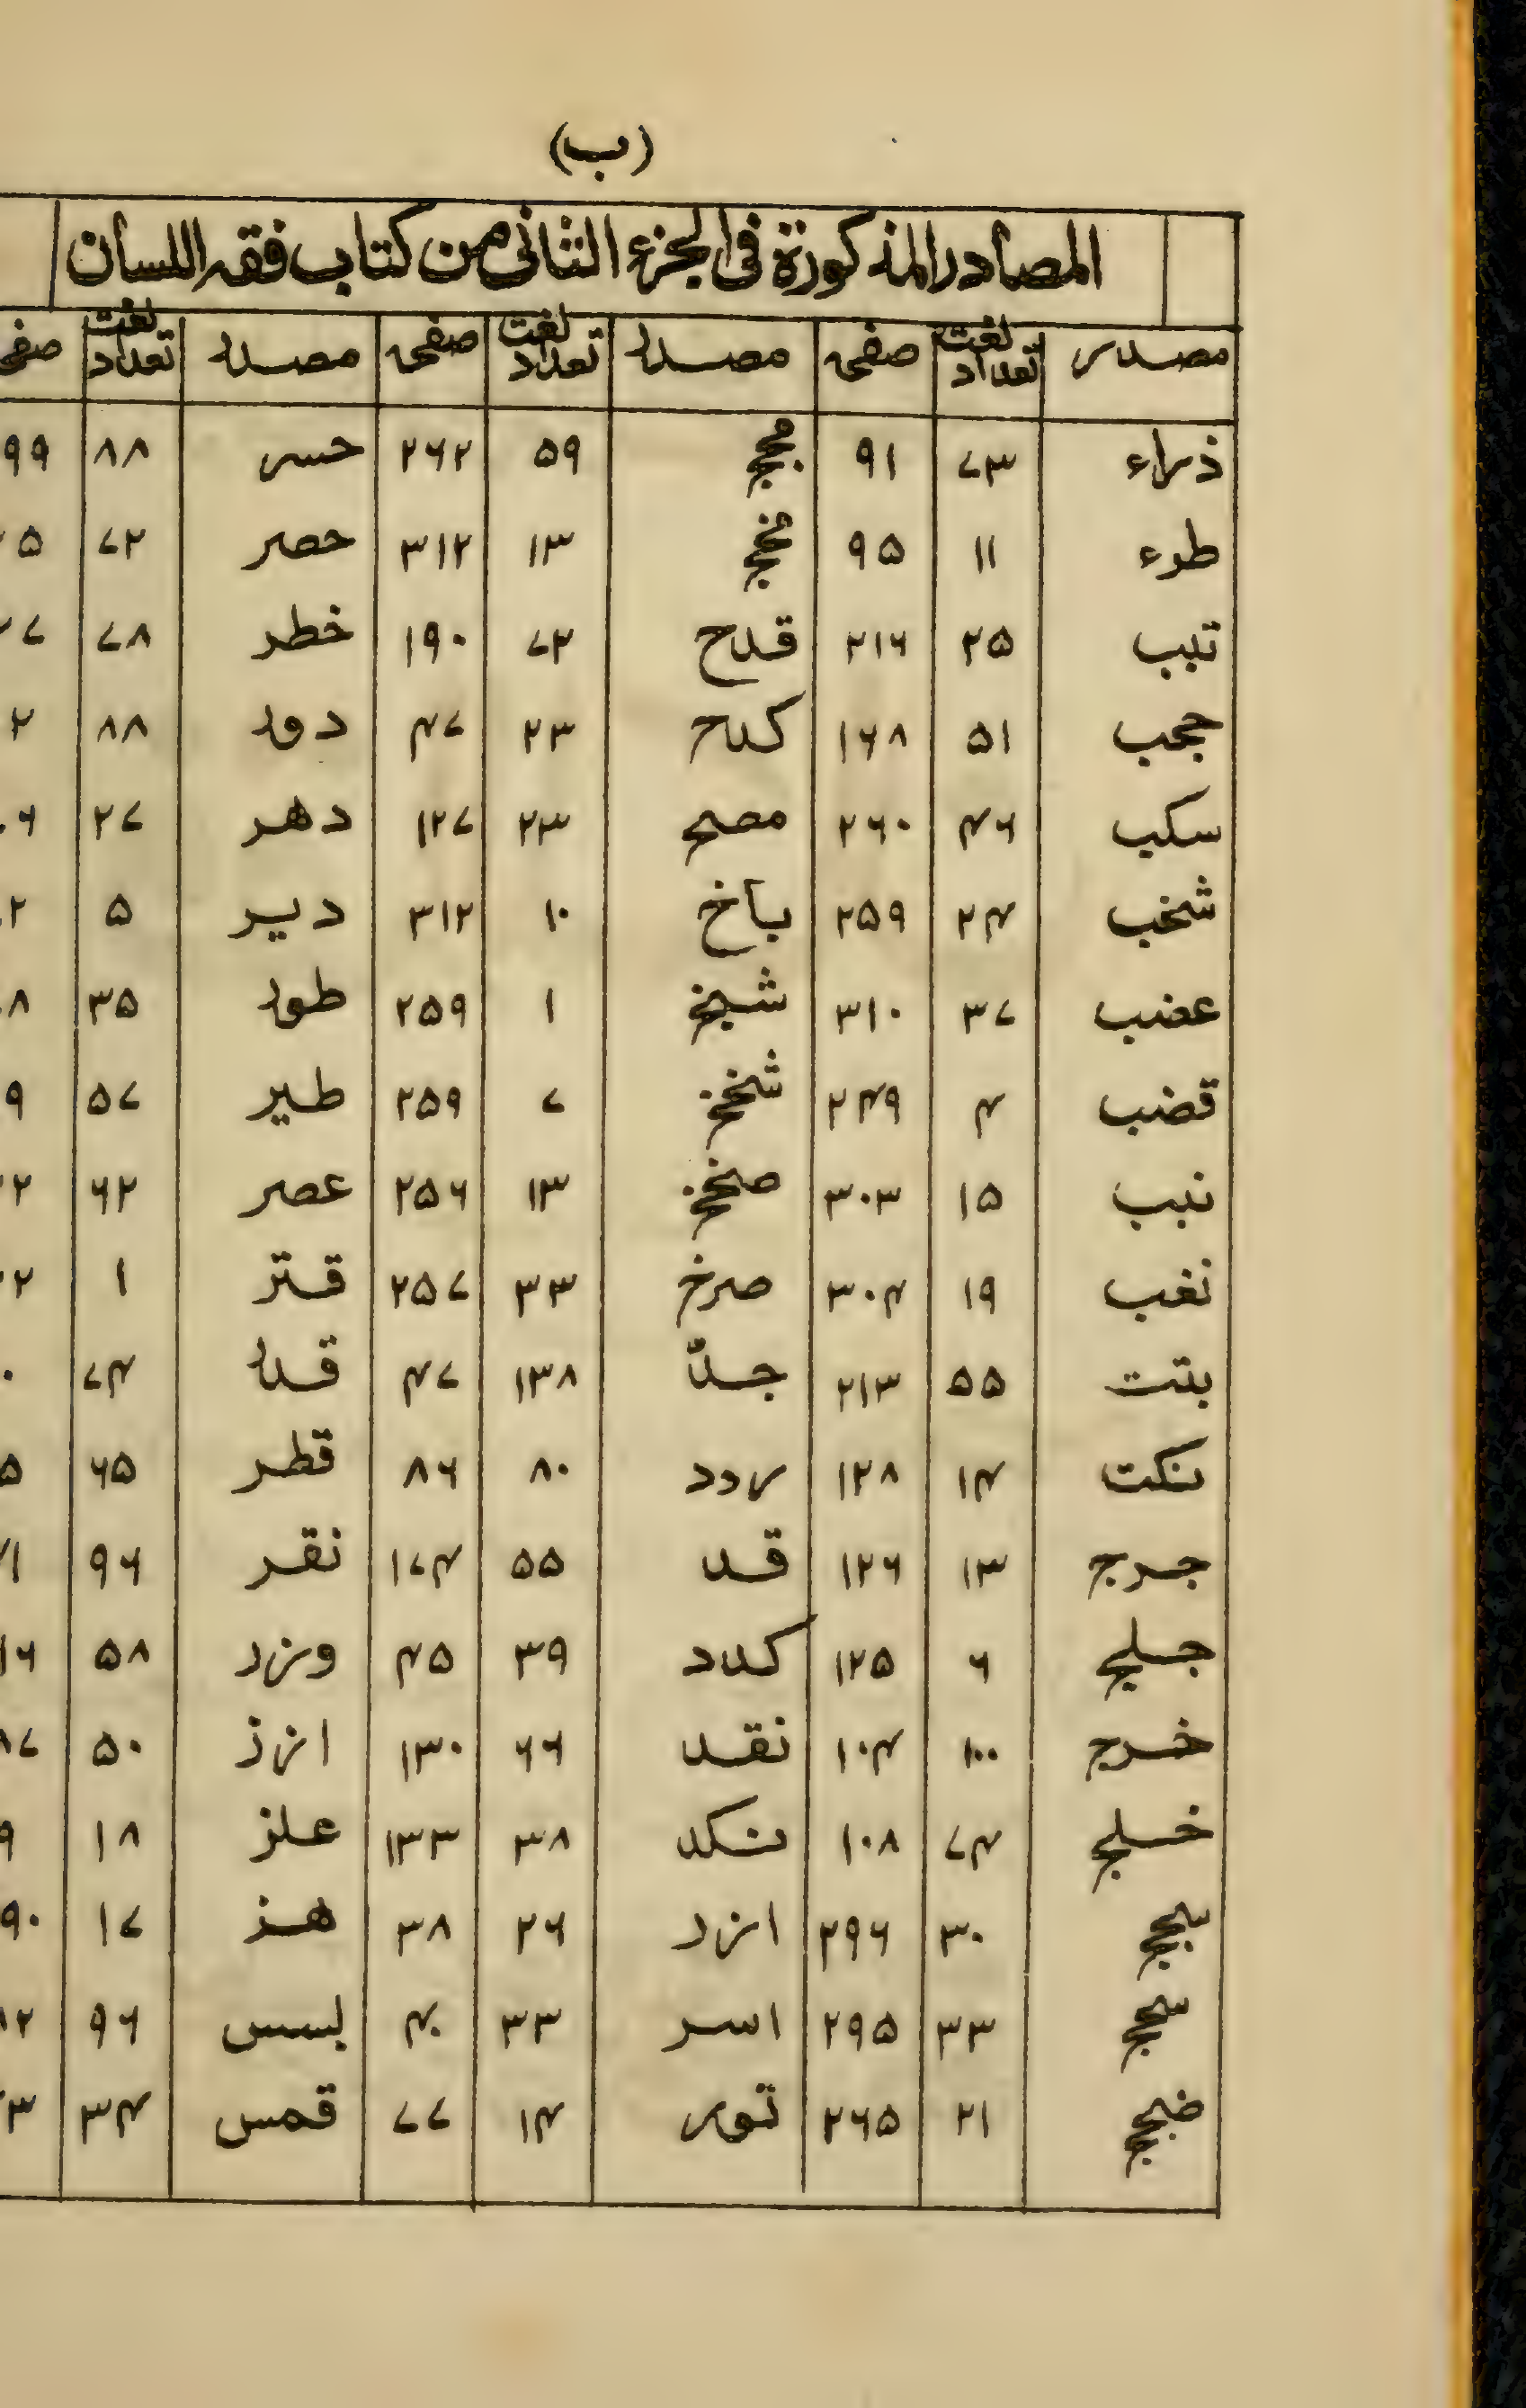 (ب)
المصادر المذكورة فى الجزء الثانى من كتاب فقه اللسان
مصدر تعداد لغت صفحہ مصدر تعداد لغت صفحہ مصدر تعداد لغت
ذراء ۷۳ ۹۱ ۵۹ ۲۶۲ حسر ۸۸ ۹۹
طرء ۱۱ ۹۵ ۱۳ ۳۱۲ حصر ۷۲
تبب ۲۵ ۲۱۶ قدح ۷۲ ۱۹۰ خطر ۷۸
حجب ۵۱ ۱۶۸ كدح ۲۳ ۴۷ دور ۸۸
سكب ۴۶ ۲۶۰ مصح ۲۳ ۱۲۷ دهر ۲۷
شخب ۲۴ ۲۵۹ باخ ۱۰ ۳۱۲ دير ۵
عضب ۳۷ ۳۱۰ شيخ ۱ ۲۵۹ طور ۳۵
قضب ۴ ۲۴۹ شخخ ۷ ۲۵۹ طير ۵۷
نبب ۱۵ ۳۰۳ صخخ ۱۳ ۲۵۶ عصر ۶۲
نغب ۱۹ ۳۰۴ صرخ ۳۳ ۲۵۷ قتر ۱
بتت ۵۵ ۲۱۳ جدّ ۱۳۸ ۴۷ قدر ۷۴
نكت ۱۴ ۱۲۸ ردد ۸۰ ۸۶ قطر ۶۵
جرج ۱۳ ۱۲۶ قد ۵۵ ۱۷۴ نقر ۹۶
جلج ۶ ۱۲۵ كدد ۳۹ ۴۵ وزر ۵۸
خرج ۱۰۰ ۱۰۴ نقد ۶۶ ۱۳۰ ازز ۵۰
خلج ۷۴ ۱۰۸ نكد ۳۸ ۱۳۳ علز ۱۸
۳۰ ۲۹۶ ازر ۲۶ ۳۸ هز ۱۷
۳۳ ۲۹۵ اسر ۳۳ ۴۰ بسس ۹۶
ضجج ۲۱ ۲۶۵ تور ۱۴ ۷۷ قمس ۳۴